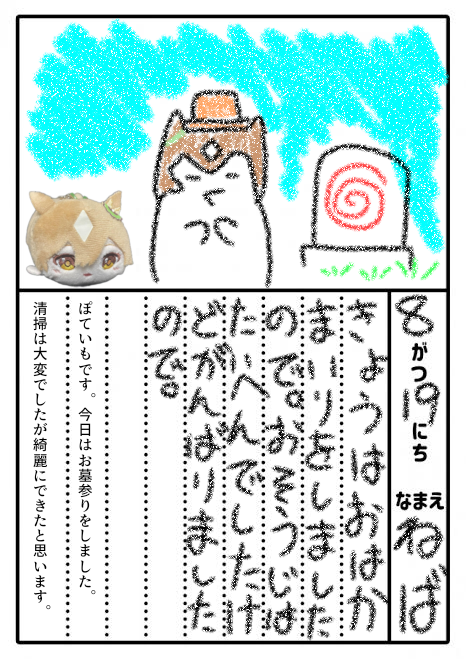 8がつ19にち なまえ ねば
きょうはおはか
まいりをしました
ので。おそうじは
たいへんでしたけ
どがんばりました
ので。
ぽていもです。今日はお墓参りをしました。
清掃は大変でしたが綺麗にできたと思います。